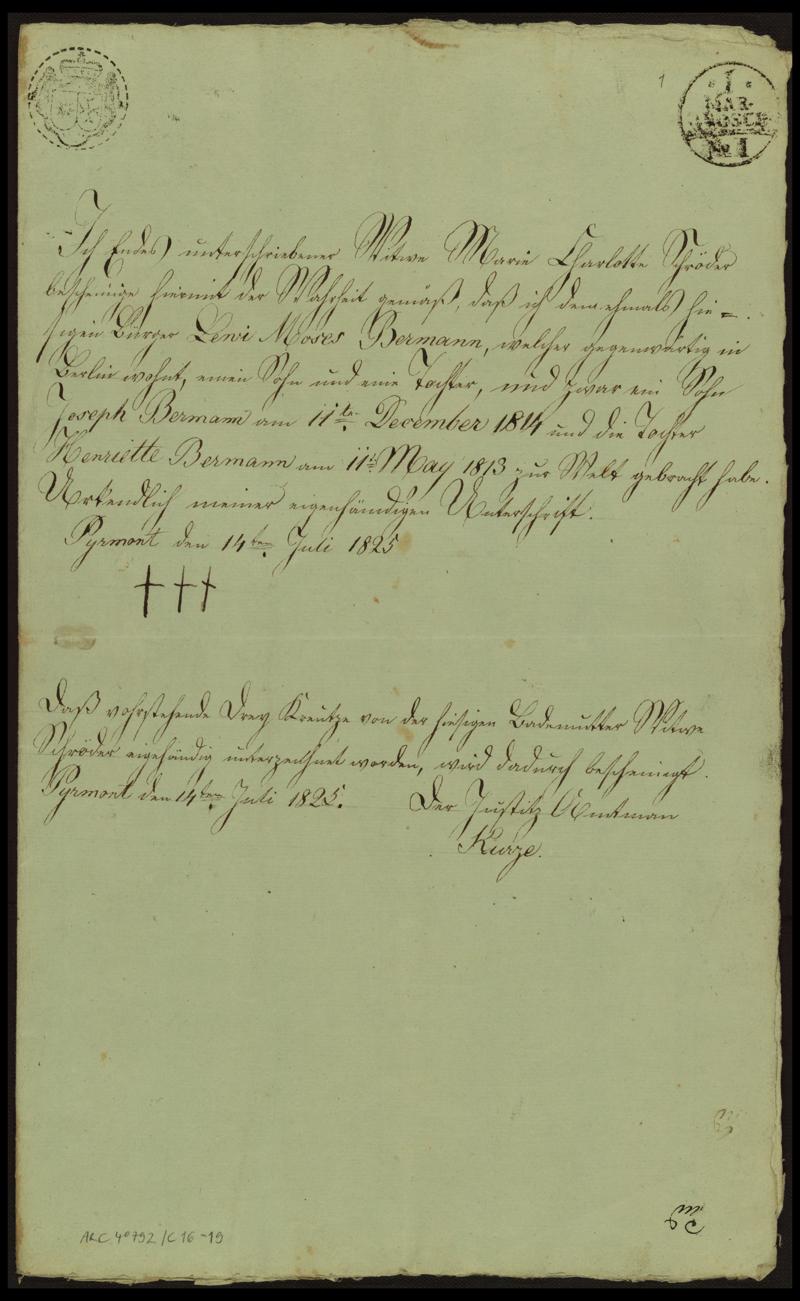 1
1
MAR-
GROSCH
No 1
Ich Endes unterschriebener Witwe Marie Charlotte Schröder
bescheinige hiermit der Wahrheit gemäß, daß ich dem ehmals hie=
sigen Bürger Lewi Moses Bermann, welcher gegenwärtig in
Berlin wohnt, einen Sohn und eine Tochter, und zwar ein Sohn
Joseph Bermann am 11ten December 1814 und die Tochter
Henriette Bermann am 11t May 1813 zur Welt gebracht habe.
Urkendlich meiner eigenhändigen Unterschrift.
Pyrmont den 14ten Juli 1825
†††
Daß vohrstehende Drey Kreutze von der hiesigen Bademutter Witwe
Schröder eigehändig unterzeichnet worden, wird dadurch bescheiniegt.
Pyrmont den 14ten Juli 1825. Der Justitz Amtman
Kurze.
ARC 4o 792 / C 16-19